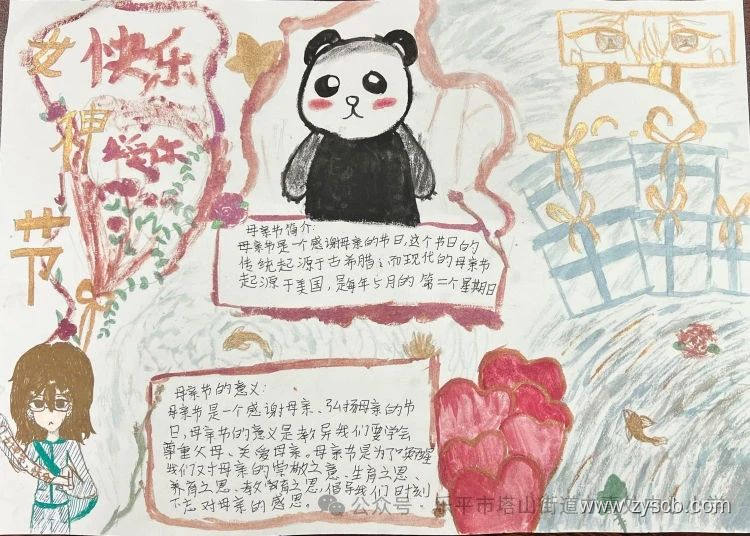 女神节
快乐
爱你
母亲节简介:
母亲节是一个感谢母亲的节日,这个节日的
传统起源于古希腊;而现代的母亲节
起源于美国,是每年5月的第二个星期日
母亲节的意义:
母亲节是一个感谢母亲、弘扬母亲的节
日,母亲节的意义是教导我们要学会
尊重父母、关爱母亲。母亲节是为了唤醒
我们对母亲的崇敬之意、生育之恩、
养育之恩、教育之恩,倡导我们时刻
不忘对母亲的感恩。
公众号·乐平市塔山街道
www.zyscb.com